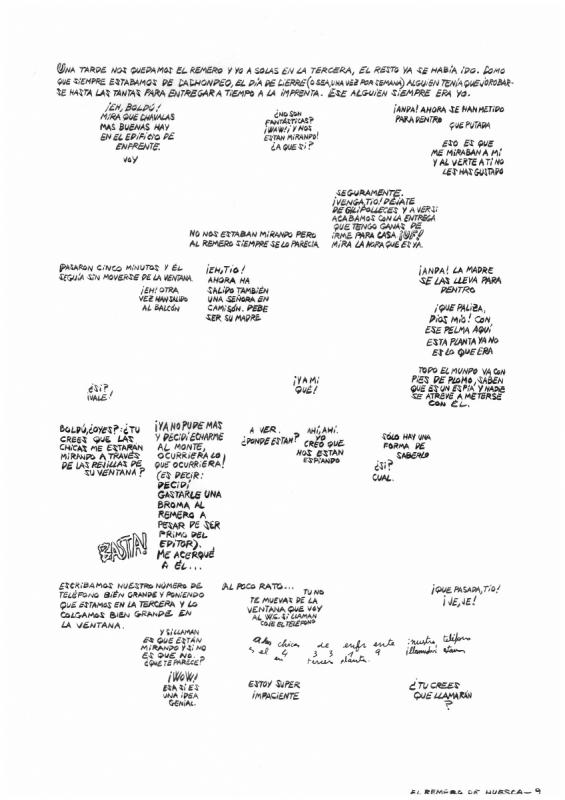 UNA TARDE NOS QUEDAMOS EL REMERO Y YO A SOLAS EN LA TERCERA, EL RESTO YA SE HABÍA IDO. COMO
QUE SIEMPRE ESTABAMOS DE CACHONDEO, EL DÍA DE CIERRE (O SEA, UNA VEZ POR SEMANA) ALGUIEN TENÍA QUE JOROBAR-
SE HASTA LAS TANTAS PARA ENTREGAR A TIEMPO A LA IMPRENTA. ESE ALGUIEN SIEMPRE ERA YO.
¡EH, BOLDÚ!
MIRA QUE CHAVALAS
MAS BUENAS HAY
EN EL EDIFICIO DE
ENFRENTE.
VOY
¿NO SON
FANTÁSTICAS?
¡WAW! ¡Y NOS
ESTAN MIRANDO!
¿A QUE SI?
¡ANDA! AHORA SE HAN METIDO
PARA DENTRO
QUE PUTADA
ESO ES QUE
ME MIRABAN A MÍ
Y AL VERTE A TI NO
LES HAS GUSTADO
NO NOS ESTABAN MIRANDO PERO
AL REMERO SIEMPRE SE LO PARECIA
SEGURAMENTE.
¡VENGA, TIO! DÉJATE
DE GILIPOLLECES Y A VER SI
ACABAMOS CON LA ENTREGA
QUE TENGO GANAS DE
IRME PARA CASA. ¡UF!
MIRA LA HORA QUE ES YA.
PASARON CINCO MINUTOS Y ÉL
SEGUÍA SIN MOVERSE DE LA VENTANA.
¡EH! OTRA
VEZ HAN SALIDO
AL BALCÓN
¡EH, TIO!
AHORA HA
SALIDO TAMBIÉN
UNA SEÑORA EN
CAMISÓN. DEBE
SER SU MADRE
¡ANDA! LA MADRE
SE LAS LLEVA PARA
DENTRO
¡QUE PALIZA,
DIOS MIO! CON
ESE PELMA AQUÍ
ESTA PLANTA YA NO
ES LO QUE ERA
¿SI?
¡VALE!
¡Y A MI
QUÉ!
TODO EL MUNDO VA CON
PIES DE PLOMO, SABEN
QUE ES UN ESPÍA Y NADIE
SE ATREVE A METERSE
CON ÉL.
BOLDÚ, ¿OYES?: ¿TU
CREES QUE LAS
CHICAS ME ESTARÁN
MIRANDO A TRAVÉS
DE LAS REJILLAS DE
SU VENTANA?
¡BASTA!
¡YA NO PUDE MAS
Y DECIDÍ ECHARME
AL MONTE,
OCURRIERA LO
QUE OCURRIERA!
(ES DECIR:
DECIDÍ
GASTARLE UNA
BROMA AL
REMERO A
PESAR DE SER
PRIMO DEL
EDITOR).
ME ACERQUÉ
A ÉL...
A VER.
¿DONDE ESTAN?
AHÍ, AHÍ.
YO
CREO QUE
NOS ESTAN
ESPIANDO
SÓLO HAY UNA
FORMA DE
SABERLO
¿SI?
CUAL.
ESCRIBAMOS NUESTRO NÚMERO DE
TELÉFONO BIÉN GRANDE Y PONIENDO
QUE ESTAMOS EN LA TERCERA Y LO
COLGAMOS BIEN GRANDE EN
LA VENTANA.
Y SI LLAMAN
ES QUE ESTÁN
MIRANDO Y SI NO
ES QUE NO.
¿QUE TE PARECE?
¡WOW!
ESA SI ES
UNA IDEA
GENIAL.
AL POCO RATO...
TU NO
TE MUEVAS DE LA
VENTANA QUE VOY
AL W.C. SI LLAMAN
COJE EL TELÉFONO
chicas de enfrente nuestro teléfono
es el 4 3 3 1 9
en tercera planta.
ESTOY SUPER
IMPACIENTE
¡QUE PASADA, TIO!
¡JE, JE!
¿TU CREES
QUE LLAMARÁN
?
EL REMERO DE HUESCA — 9